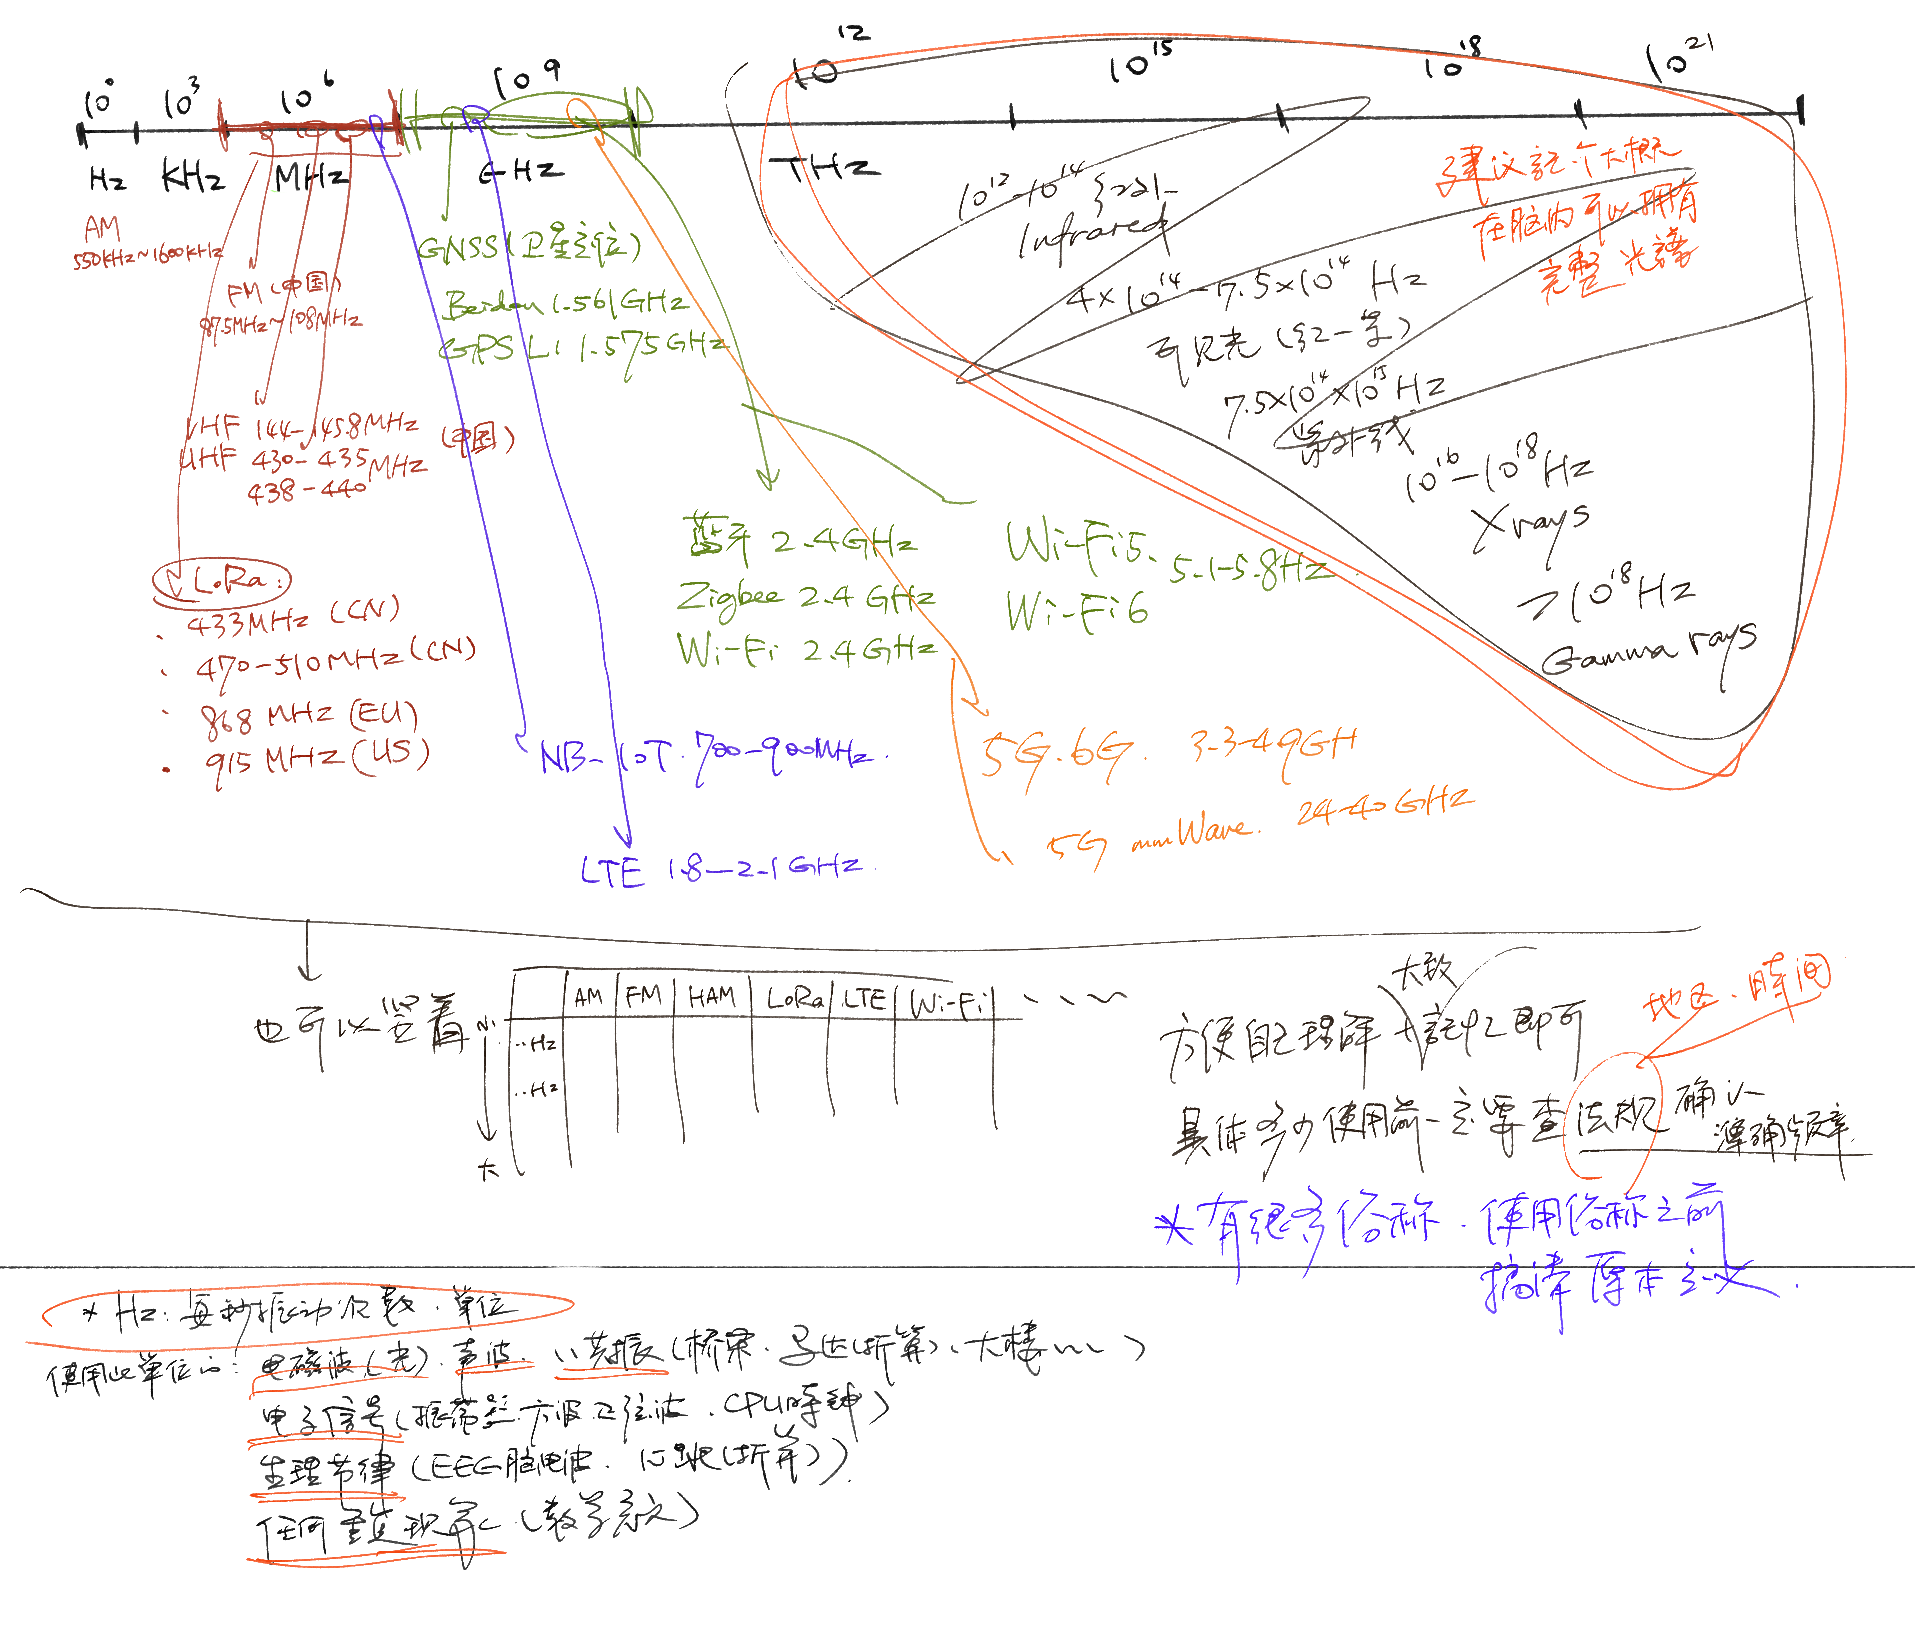 10⁰ 10³ 10⁶ 10⁹ 10¹² 10¹⁵ 10¹⁸ 10²¹
Hz KHz MHz GHz THz
AM
550KHz~1600KHz
FM (中国)
87.5MHz~108MHz
VHF 144-145.8MHz
UHF 430-435MHz (中国)
438-440
LoRa:
· 433MHz (CN)
· 470-510MHz (CN)
· 868 MHz (EU)
· 915 MHz (US)
GNSS (卫星定位)
Beidou 1.561GHz
GPS L1 1.575GHz
蓝牙 2.4GHz
Zigbee 2.4GHz
Wi-Fi 2.4GHz
Wi-Fi5. 5.1-5.8Hz
Wi-Fi6
NB-IoT. 700-900MHz.
LTE 1.8-2.1GHz.
5G.6G. 3.3-4.9GH
5G mmWave. 24-40GHz
10¹²-10¹⁴ 红外
Infrared
4×10¹⁴-7.5×10¹⁴ Hz
可见光 (红-紫)
7.5×10¹⁴×10¹⁵Hz
紫外线
10¹⁶-10¹⁸Hz
X rays
>10¹⁸Hz
Gamma rays
建议記个大概
在脑内可以拥有
完整光譜
也可以竖着
小
大
AM FM HAM LoRa LTE Wi-Fi
..Hz
..Hz
大致
方便自己理解+記忆即可
地区、時间
具体多少使用前一定要查法规 确认
準确频率.
*有很多俗称.使用俗称之前
搞清原本定义.
* Hz: 每秒振动次数.单位
使用此单位的: 电磁波(光).声波. 共振(桥梁.马达(折算)、大楼...)
电子信号(振荡器.方波正弦波.CPU時鐘)
生理节律(EEG脑电波.心跳(折算))
任何重复现象(数学意义)